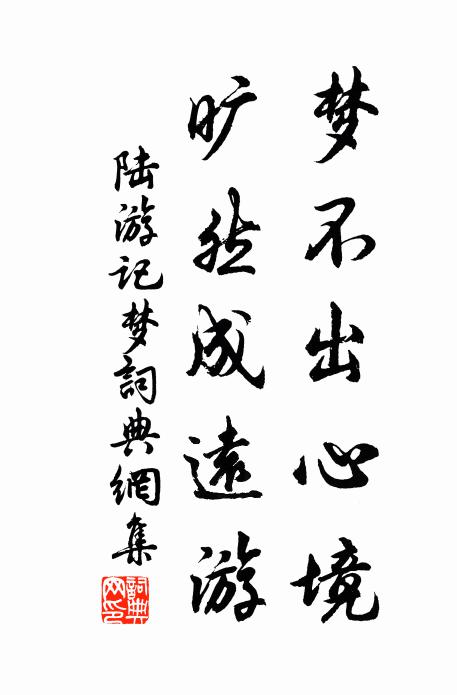 梦不出心境
旷然成遠游
陆游记梦詞典網集
詞典网印